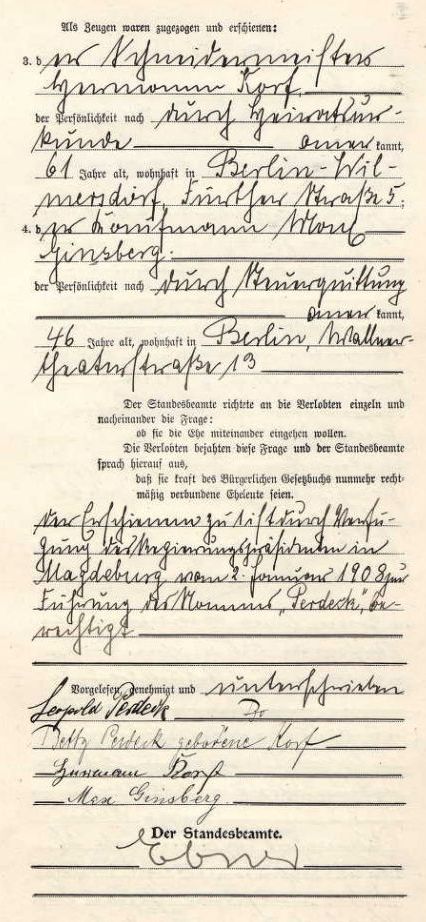 Als Zeugen waren zugezogen und erschienen:
3. der Schneidermeister
Hermann Korf,
der Persönlichkeit nach durch Heiratsur-
kunde anerkannt,
61 Jahre alt, wohnhaft in Berlin-Wil-
mersdorf, Fürther Straße 5;
4. der Kaufmann Max
Ginsberg.
der Persönlichkeit nach durch Steuerquittung
anerkannt,
46 Jahre alt, wohnhaft in Berlin, Wallner-
theaterstraße 13
Der Standesbeamte richtete an die Verlobten einzeln und
nacheinander die Frage:
ob sie die Ehe miteinander eingehen wollen.
Die Verlobten bejahten diese Frage und der Standesbeamte
sprach hierauf aus,
daß sie kraft des Bürgerlichen Gesetzbuchs nunmehr recht-
mäßig verbundene Eheleute seien.
Der Erschienene zu 1 ist durch Verfü-
gung des Regierungspräsidenten in
Magdeburg vom 2. Januar 1908 zur
Führung des Namens „Perdeck“ be-
rechtigt
Vorgelesen, genehmigt und unterschrieben
Leopold Perdeck
Betty Perdeck geborene Korf
Hermann Korf
Max Ginsberg.
Der Standesbeamte.